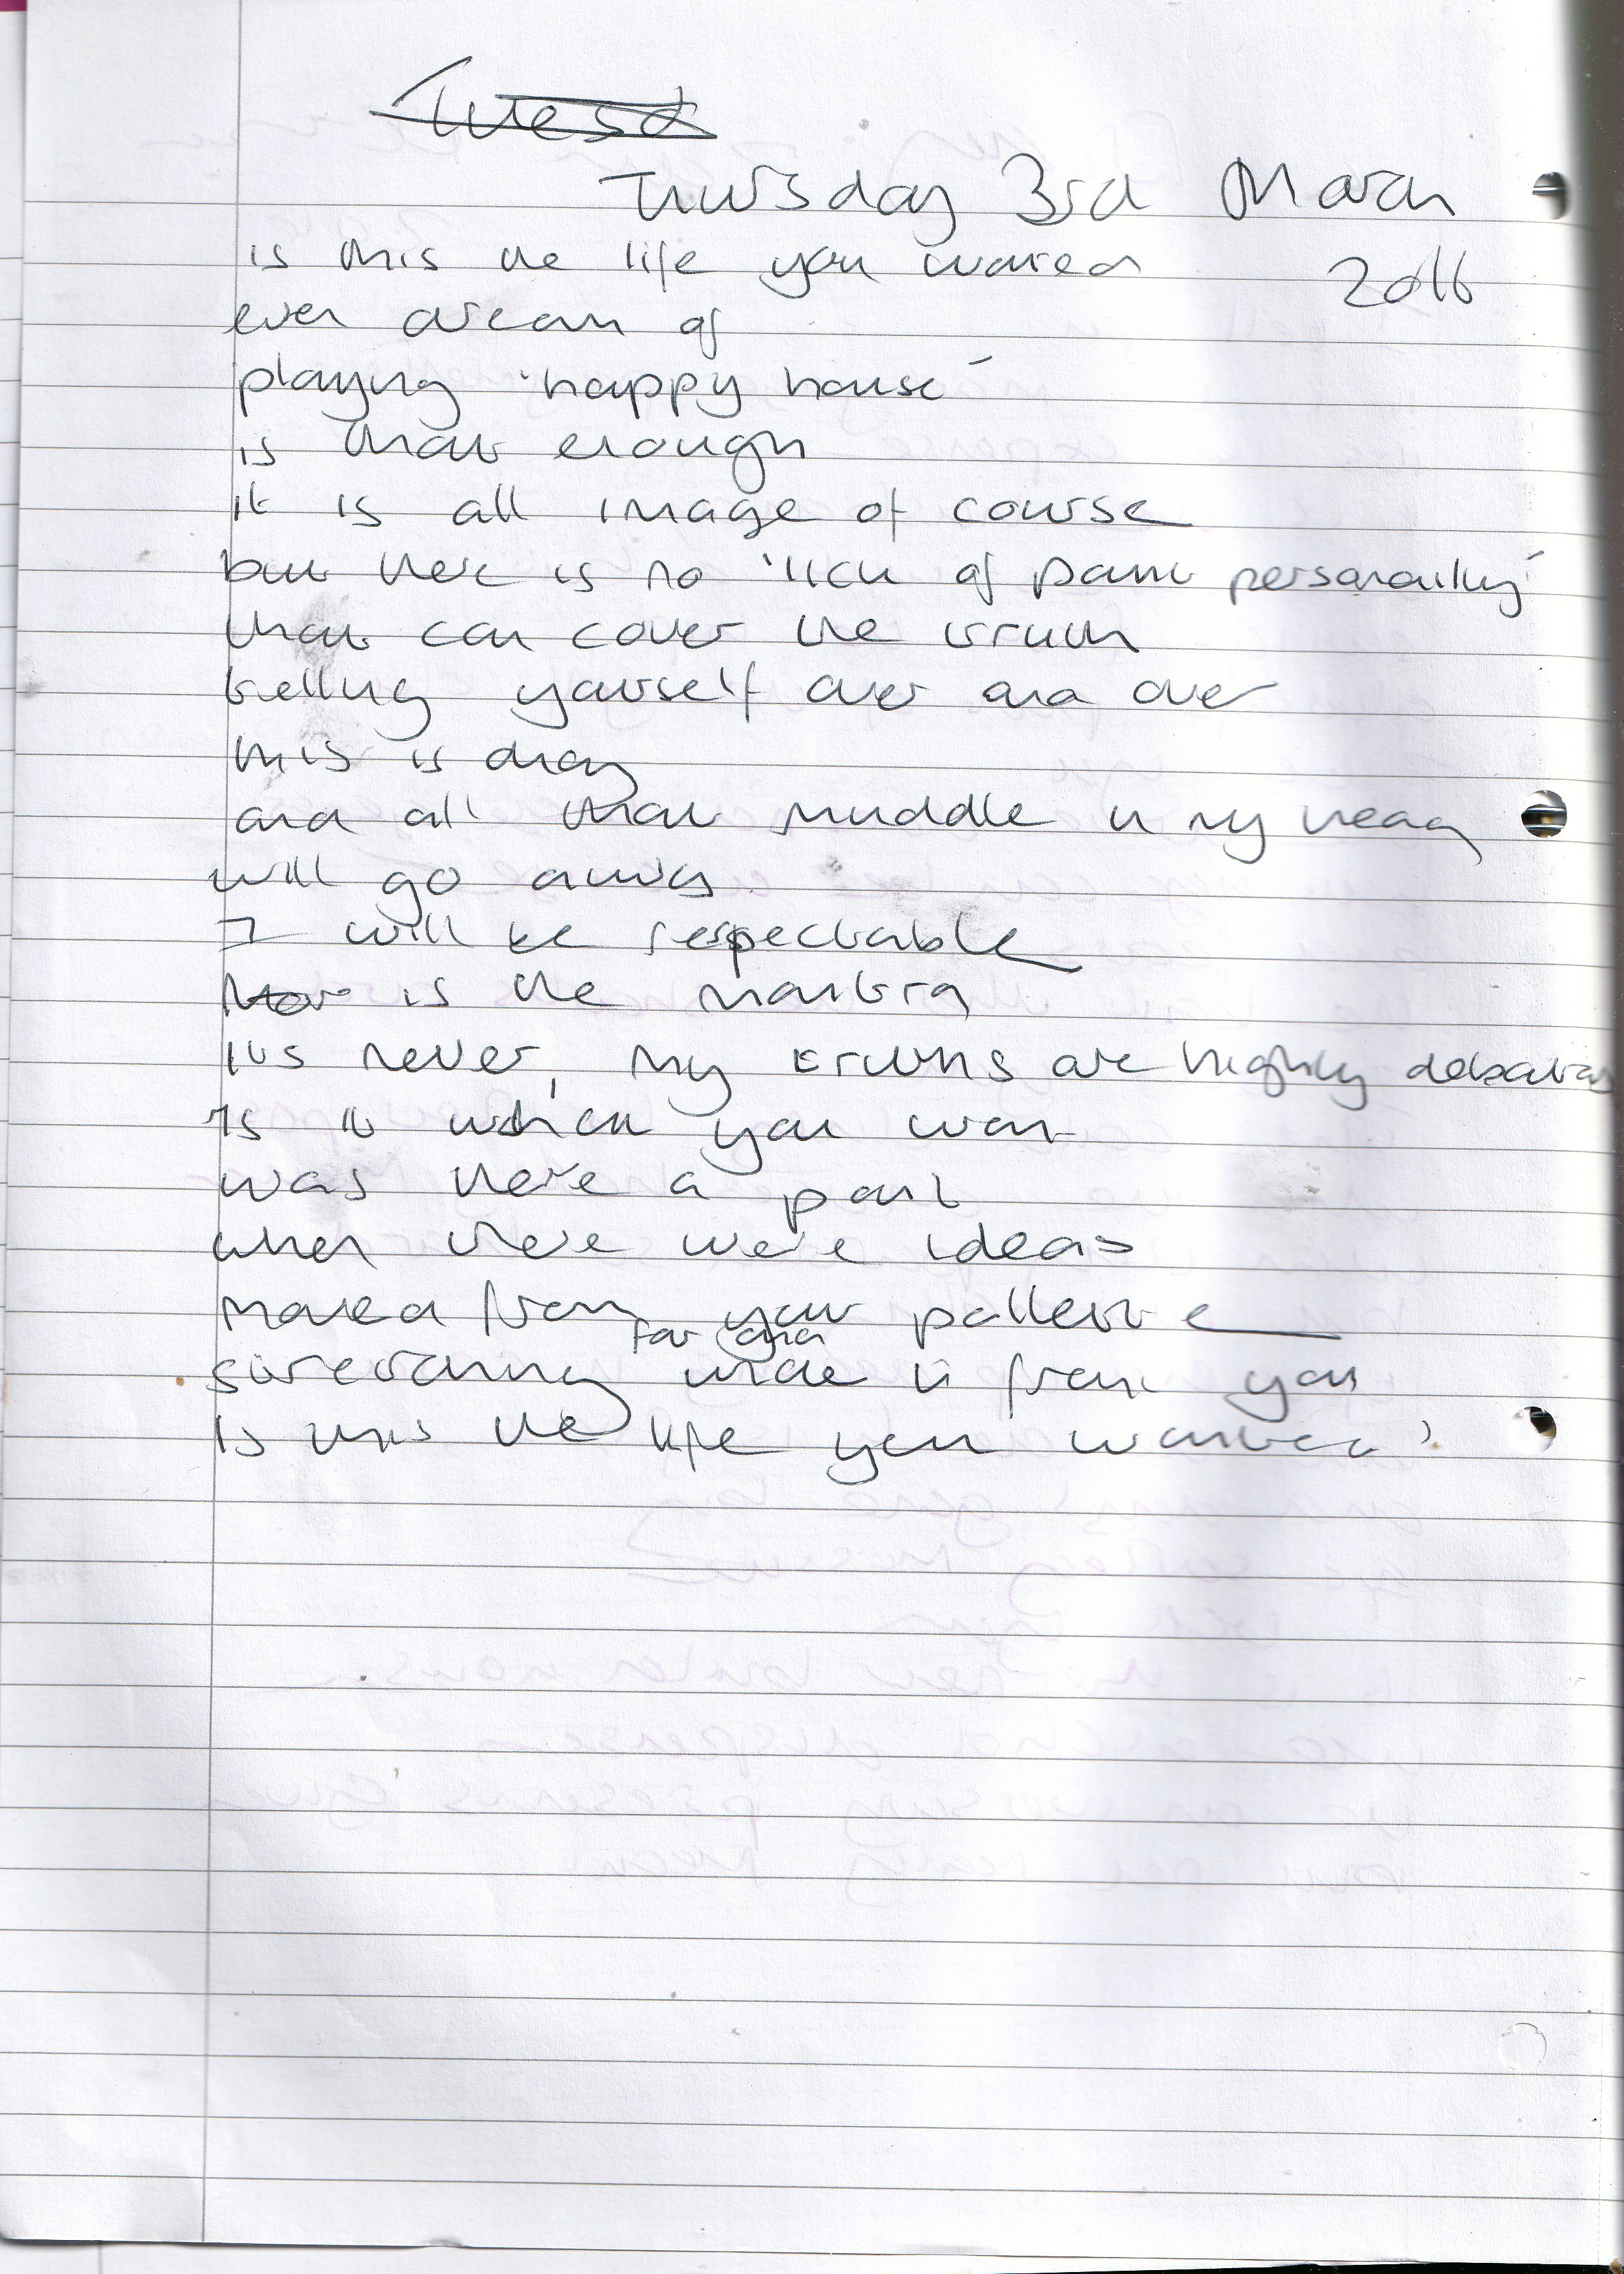 Tuesd
Thursday 3rd March
2016
is this the life you wanted
ever dream of
playing 'happy house'
is that enough
it is all image of course
but there is no 'lick of paint personality'
that can cover the truth
telling yourself over and over
this is okay
and all that muddle in my head
will go away
I will be respectable
is the mantra
its never, my truths are highly debatable
Is it which you want
was there a past
when there were ideas
made from your pallette
far and
stretching wide in front you
Is this the life you wanted?